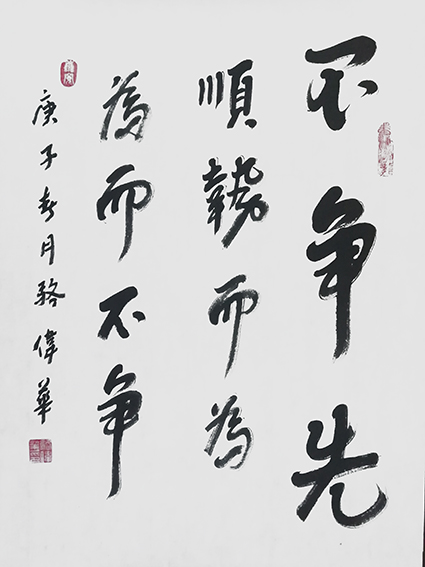 不争先
順勢而為
為而不争
庚子春月駱偉華